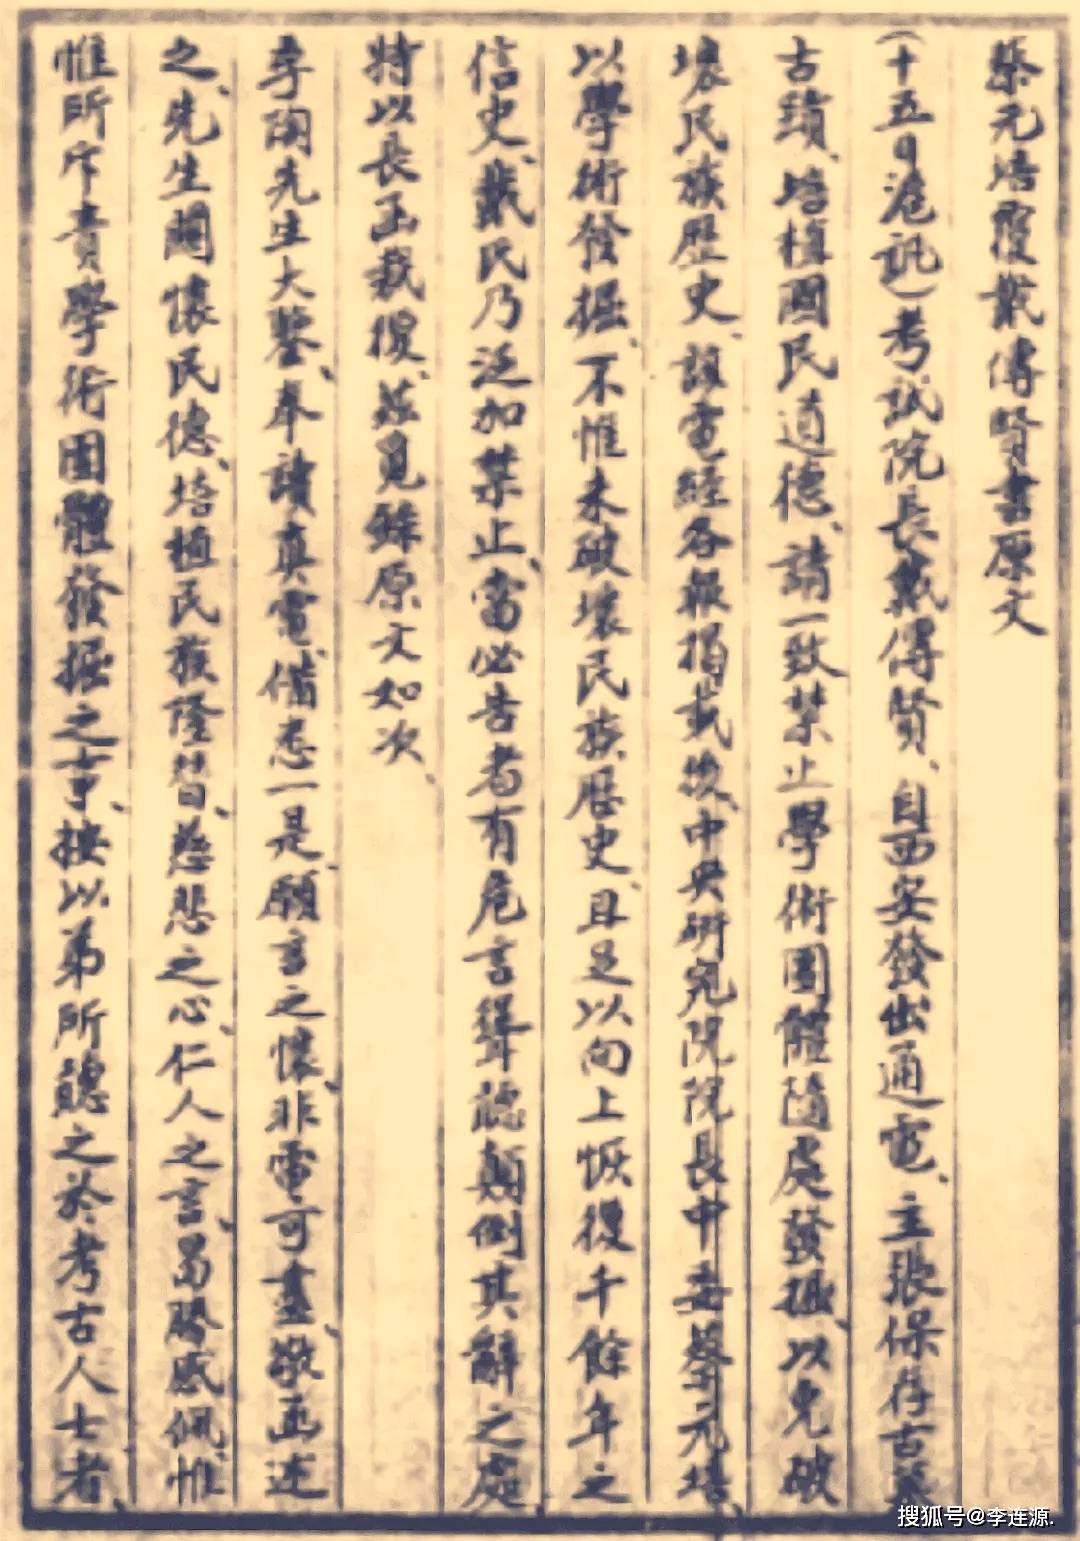 蔡元培覆戴傳賢書原文
(十五日滬訊)考試院長戴傳賢、自西安發出通電、主張保存古墓
古蹟、培植國民道德、請一致禁止學術團體隨處發掘、以免破
壞民族歷史、該電經各報揭載後、中央研究院院長中委蔡元培、
以學術發掘、不惟未破壞民族歷史、且足以向上恢復千餘年之
信史、戴氏乃泛加禁止、當必告者有危言聳聽顛倒其辭之處
特以長函裁復、茲覓錄原文如次、
季陶先生大鑒、奉讀真電、備悉一是、願言之懷、非電可盡、敬函述
之、先生關懷民德、培植民族隆替、慈悲之心、仁人之言、曷勝感佩、惟
惟所斥責學術團體發掘之事、按以弟所聽之於考古人士者、
搜狐号@李连源.